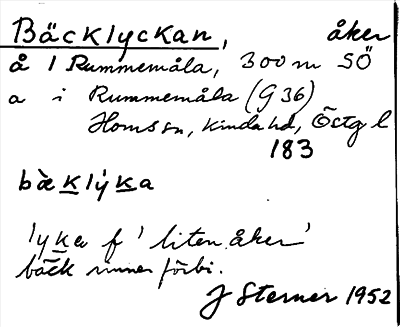 Bäcklyckan, åker
å 1 Rummemåla, 300 m SÖ
a i Rummemåla (G 36)
Horns sn, Kinda hd, Östg l
183
bæ̀klýka
lyka f 'liten åker'
bäck rinner förbi.
J Sterner 1952